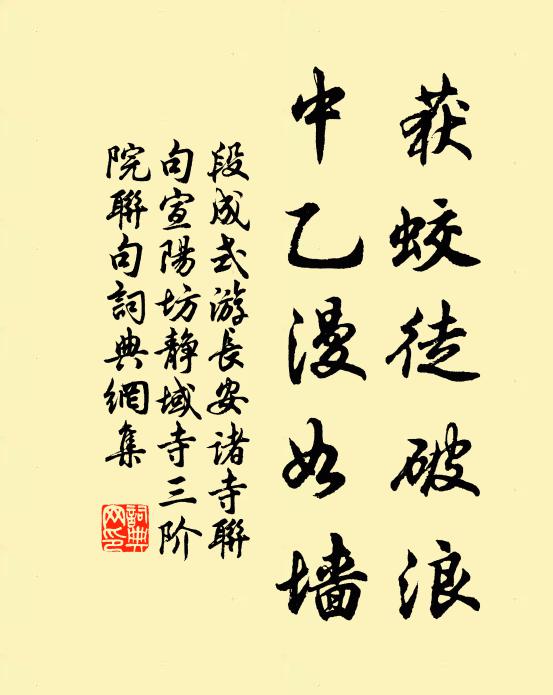 获蛟徒破浪
中乙漫如墙
段成式游长安诸寺聯
句宣陽坊静域寺三阶
院聯句詞典網集
詞典
网印